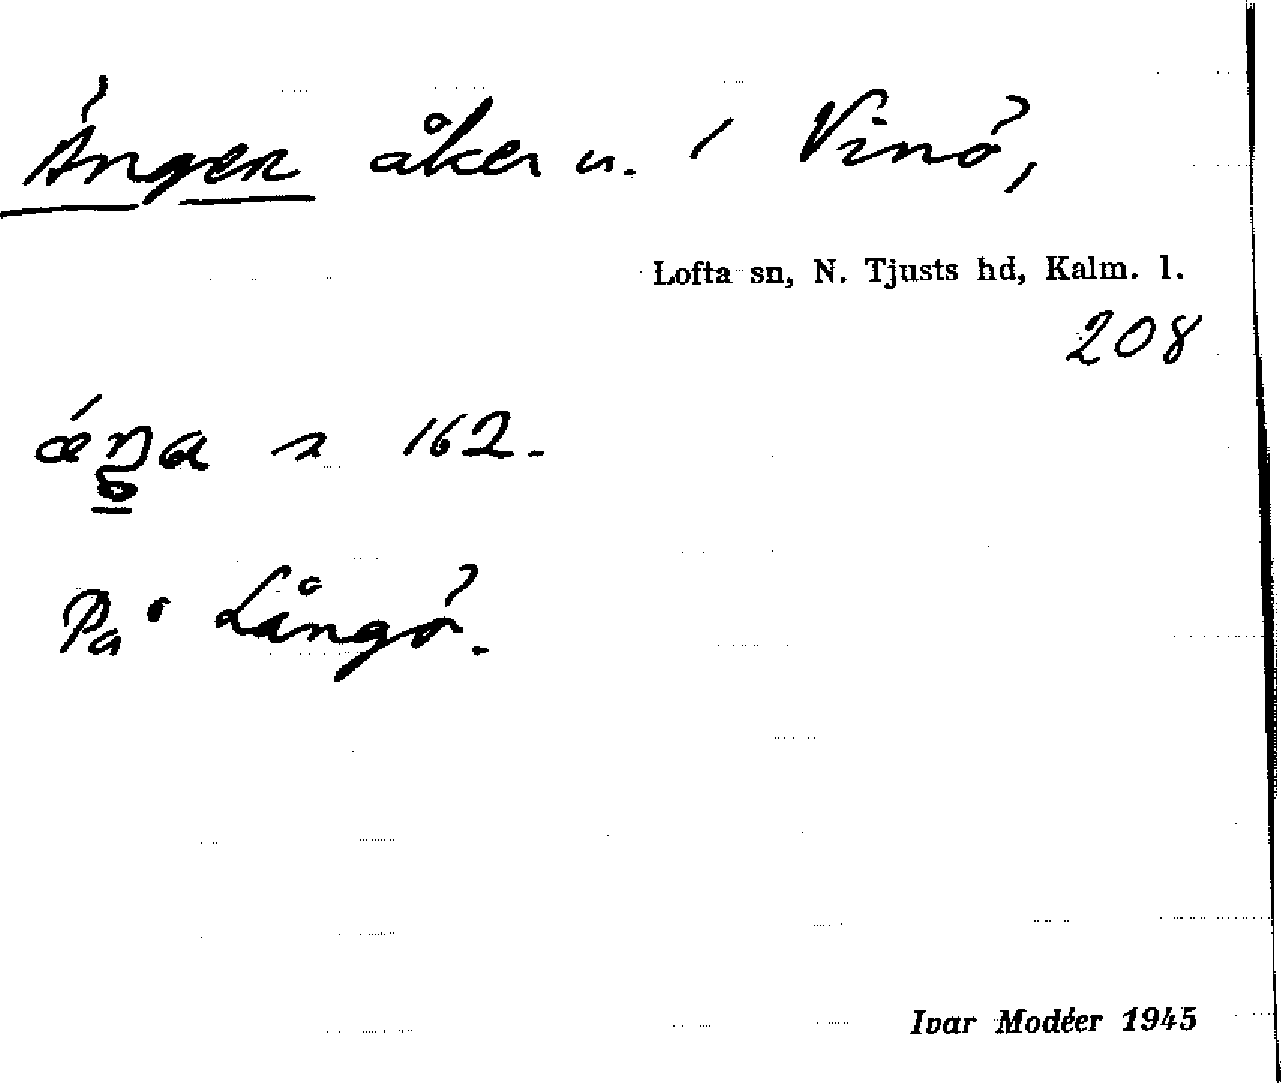 Änger åker u. i Vinö,
Lofta sn, N. Tjusts hd, Kalm. l.
208
162.
På Långö.
Ivar Modéer 1945